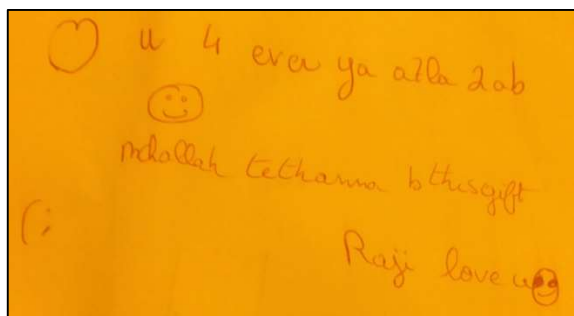 u 4 ever ya a7la 2ab
nchallah tethanna b this gift
(:
Raji love u